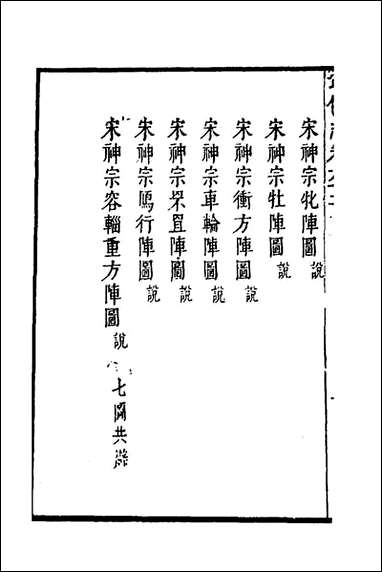 宋神宗牝陣圖說
宋神宗牡陣圖說
宋神宗衝方陣圖說
宋神宗車輪陣圖說
宋神宗罘罝陣圖說
宋神宗鴈行陣圖說
宋神宗容輜重方陣圖說
七圖共